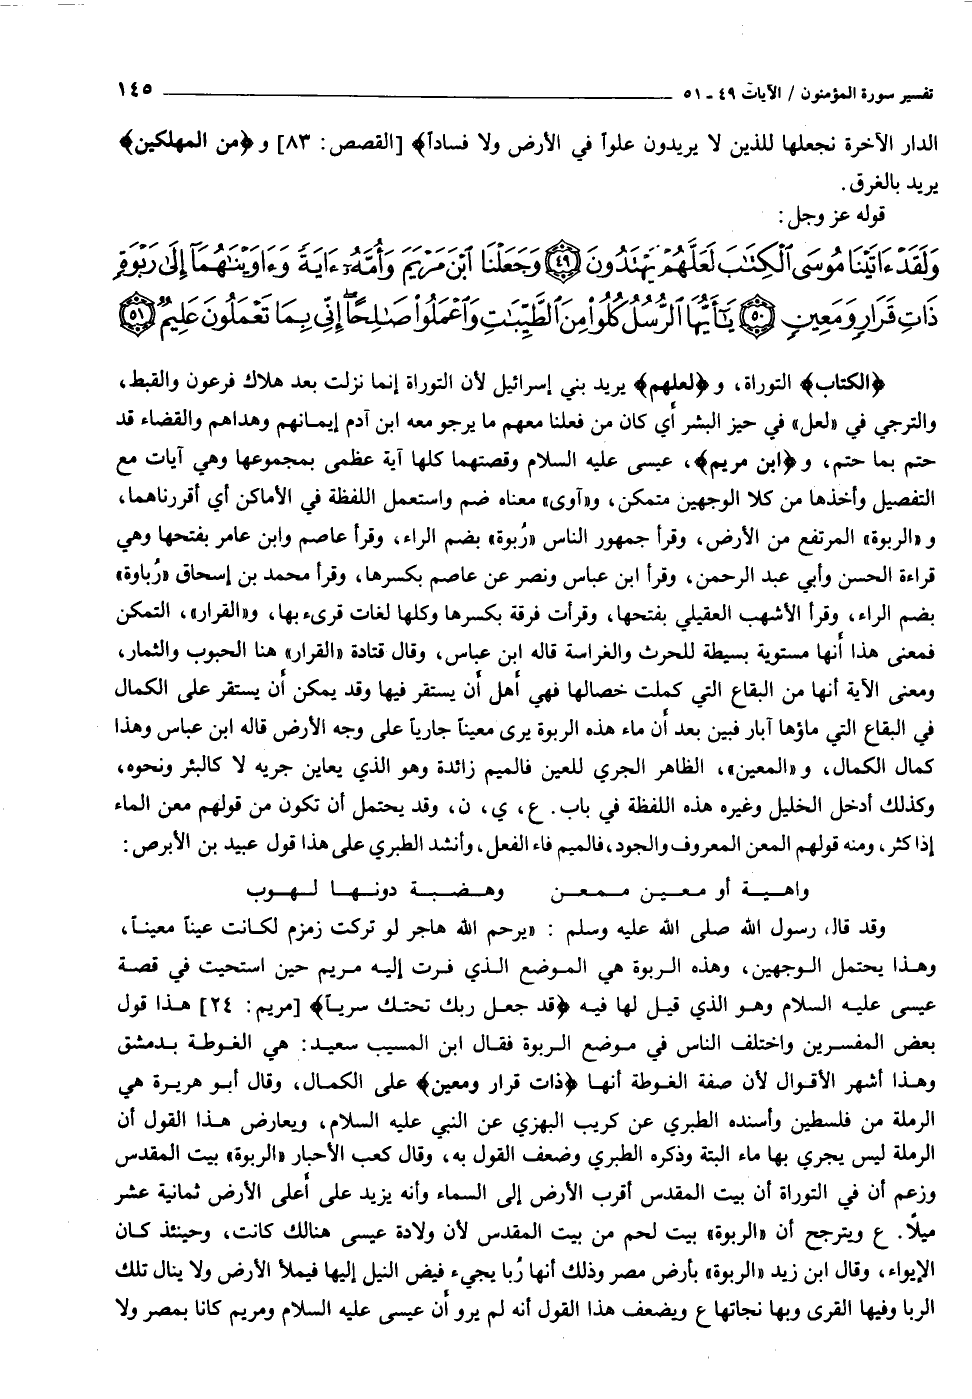 تفسير سورة المؤمنون / الآيات ٤٩ ـ ٥١ ١٤٥
الدار الآخرة نجعلها للذين لا يريدون علواً في الأرض ولا فساداً﴾ [القصص: ٨٣] و ﴿من المهلكين﴾
يريد بالغرق.
قوله عز وجل:
وَلَقَدْ ءَاتَيْنَا مُوسَى ٱلْكِتَٰبَ لَعَلَّهُمْ يَهْتَدُونَ ﴿٤٩﴾ وَجَعَلْنَا ٱبْنَ مَرْيَمَ وَأُمَّهُۥٓ ءَايَةً وَءَاوَيْنَٰهُمَآ إِلَىٰ رَبْوَةٍ
ذَاتِ قَرَارٍ وَمَعِينٍ ﴿٥٠﴾ يَٰٓأَيُّهَا ٱلرُّسُلُ كُلُوا۟ مِنَ ٱلطَّيِّبَٰتِ وَٱعْمَلُوا۟ صَٰلِحًا ۖ إِنِّى بِمَا تَعْمَلُونَ عَلِيمٌ ﴿٥١﴾
﴿الكتاب﴾ التوراة، و ﴿لعلهم﴾ يريد بني إسرائيل لأن التوراة إنما نزلت بعد هلاك فرعون والقبط،
والترجي في «لعل» في حيز البشر أي كان من فعلنا معهم ما يرجو معه ابن آدم إيمانهم وهداهم والقضاء قد
حتم بما حتم، و ﴿ابن مريم﴾، عيسى عليه السلام وقصتهما كلها آية عظمى بمجموعها وهي آيات مع
التفصيل وأخذها من كلا الوجهين متمكن، و«آوى» معناه ضم واستعمل اللفظة في الأماكن أي أقررناهما،
و «الربوة» المرتفع من الأرض، وقرأ جمهور الناس «رُبوة» بضم الراء، وقرأ عاصم وابن عامر بفتحها وهي
قراءة الحسن وأبي عبد الرحمن، وقرأ ابن عباس ونصر عن عاصم بكسرها، وقرأ محمد بن إسحاق «رُباوة»
بضم الراء، وقرأ الأشهب العقيلي بفتحها، وقرأت فرقة بكسرها وكلها لغات قرىء بها، و«القرار»، التمكن
فمعنى هذا أنها مستوية بسيطة للحرث والغراسة قاله ابن عباس، وقال قتادة «القرار» هنا الحبوب والثمار،
ومعنى الآية أنها من البقاع التي كملت خصالها فهي أهل أن يستقر فيها وقد يمكن أن يستقر على الكمال
في البقاع التي ماؤها آبار فبين بعد أن ماء هذه الربوة يرى معيناً جارياً على وجه الأرض قاله ابن عباس وهذا
كمال الكمال، و «المعين»، الظاهر الجري للعين فالميم زائدة وهو الذي يعاين جريه لا كالبئر ونحوه،
وكذلك أدخل الخليل وغيره هذه اللفظة في باب. ع، ي، ن، وقد يحتمل أن تكون من قولهم معن الماء
إذا كثر، ومنه قولهم المعن المعروف والجود، فالميم فاء الفعل، وأنشد الطبري على هذا قول عبيد بن الأبرص:
واهيـة أو معـين ممـعن وهضـبـة دونـهـا لـهوب
وقد قال رسول الله صلى الله عليه وسلم : «يرحم الله هاجر لو تركت زمزم لكانت عيناً معيناً،
وهـذا يحتمل الوجهين، وهذه الربوة هي الموضع الذي فرت إليه مريم حين استحيت في قصة
عيسى عليه السلام وهو الذي قيل لها فيه ﴿قد جعل ربك تحتك سرياً﴾ [مريم: ٢٤] هـذا قول
بعض المفسرين واختلف الناس في موضع الربوة فقال ابن المسيب سعيد: هي الغوطة بدمشق
وهـذا أشهر الأقوال لأن صفة الغوطة أنها ﴿ذات قرار ومعين﴾ على الكمال، وقال أبو هريرة هي
الرملة من فلسطين وأسنده الطبري عن كريب البهزي عن النبي عليه السلام، ويعارض هـذا القول أن
الرملة ليس يجري بها ماء البتة وذكره الطبري وضعف القول به، وقال كعب الأحبار «الربوة» بيت المقدس
وزعم أن في التوراة أن بيت المقدس أقرب الأرض إلى السماء وأنه يزيد على أعلى الأرض ثمانية عشر
ميلاً. ع ويترجح أن «الربوة» بيت لحم من بيت المقدس لأن ولادة عيسى هنالك كانت، وحينئذ كـان
الإيواء، وقال ابن زيد «الربوة» بأرض مصر وذلك أنها رُبا يجيء فيض النيل إليها فيملأ الأرض ولا ينال تلك
الربا وفيها القرى وبها نجاتها ع ويضعف هذا القول أنه لم يرو أن عيسى عليه السلام ومريم كانا بمصر ولا